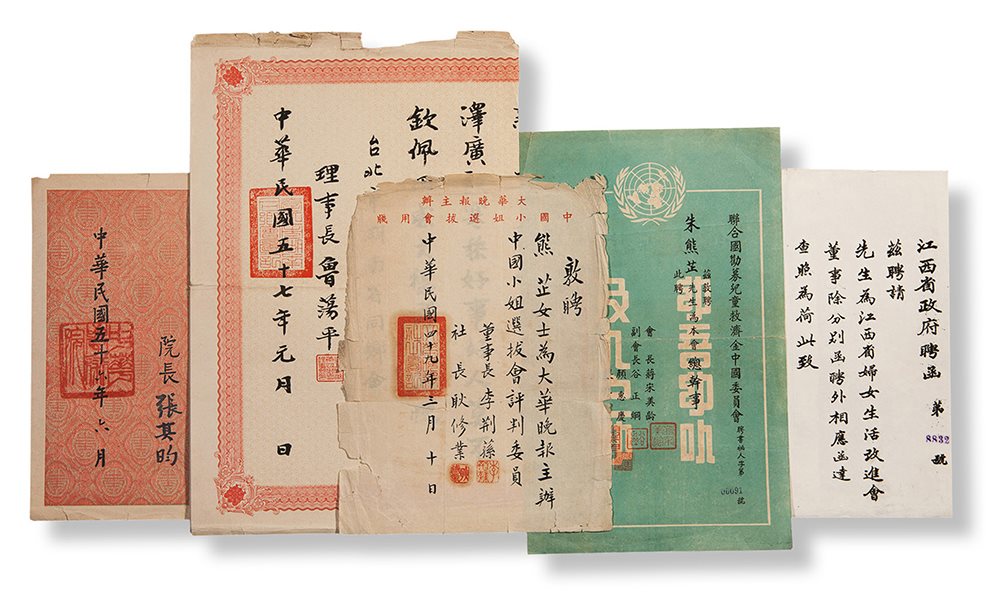 江西省政府聘函 第8832號
茲聘請
先生為江西省婦女生活改進會
董事除分別函聘外相應函達
查照為荷此致
聯合國勸募兒童救濟金中國委員會
聘書福人字第00091號
茲敦聘
朱熊芷先生為本會總幹事
此聘
會長蔣宋美齡
副會長谷正綱
顏惠慶
大華晚報主辦
中國小姐選拔會用牋
敦聘
熊芷女士為大華晚報主辦
中國小姐選拔會評判委員
董事長李荊蓀
社長耿修業
中華民國四十九年三月十日
澤廣
欽佩
台北
理事長魯蕩平
中華民國五十七年元月 日
院長張其昀
中華民國五十六年六月